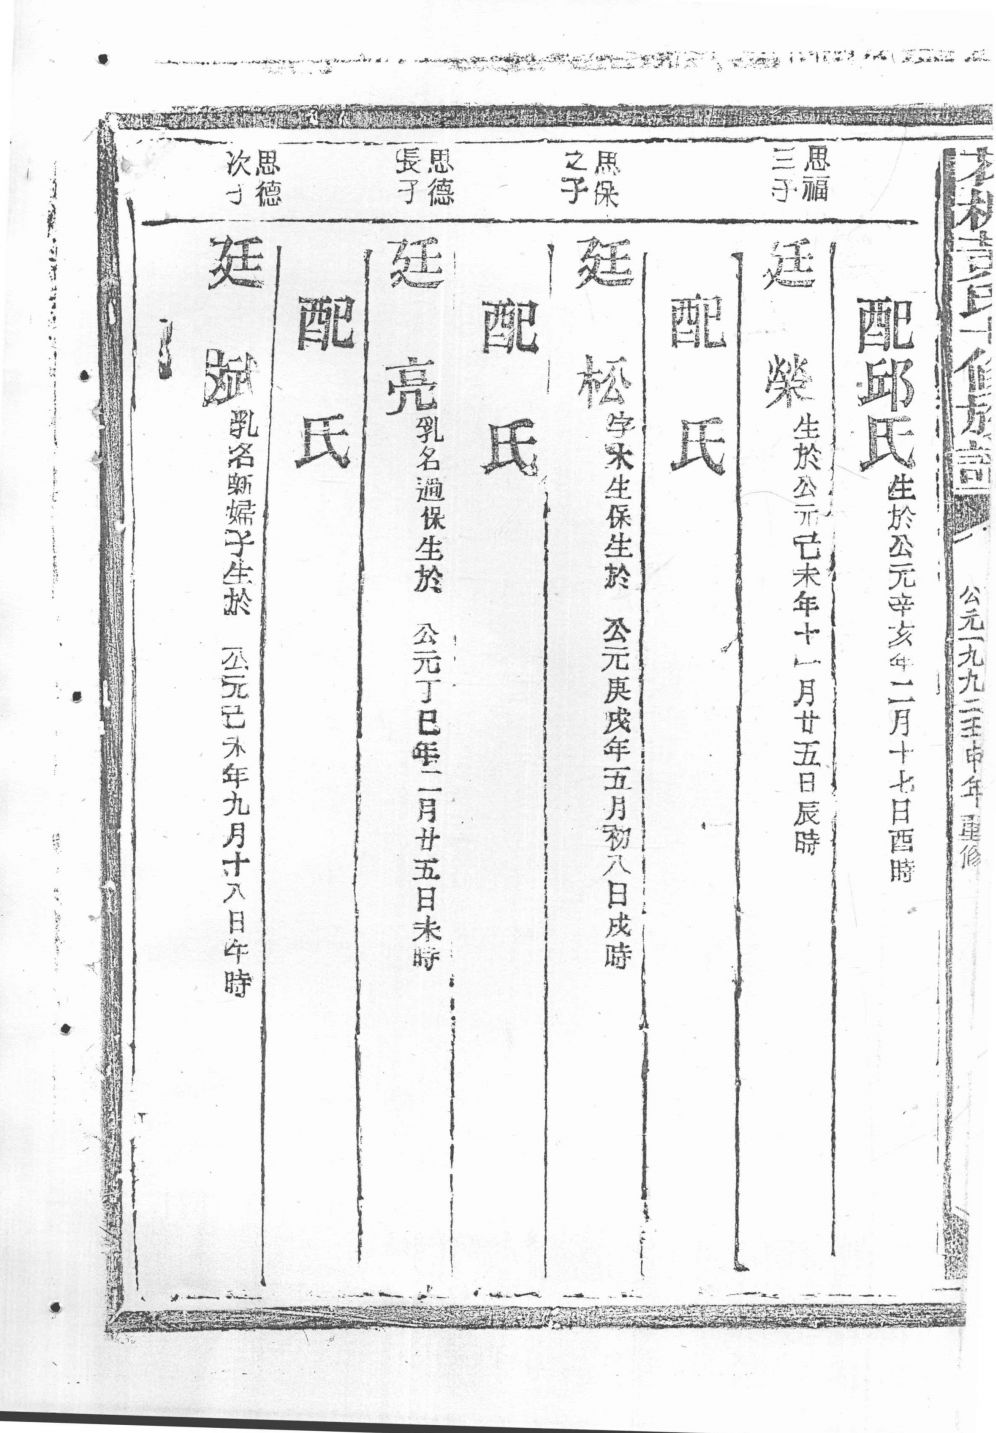 黃氏十修族譜
公元一九九二壬申年重修
配邱氏生於公元辛亥年二月十七日酉時
思福三子
廷榮生於公元己未年十一月廿五日辰時
配 氏
思保之子
廷松字木生保生於 公元庚戌年五月初八日戌時
配 氏
思德長子
廷亮乳名過保生於 公元丁巳年二月廿五日未時
配 氏
思德次子
廷斌乳名新婦子生於 公元己未年九月十八日午時